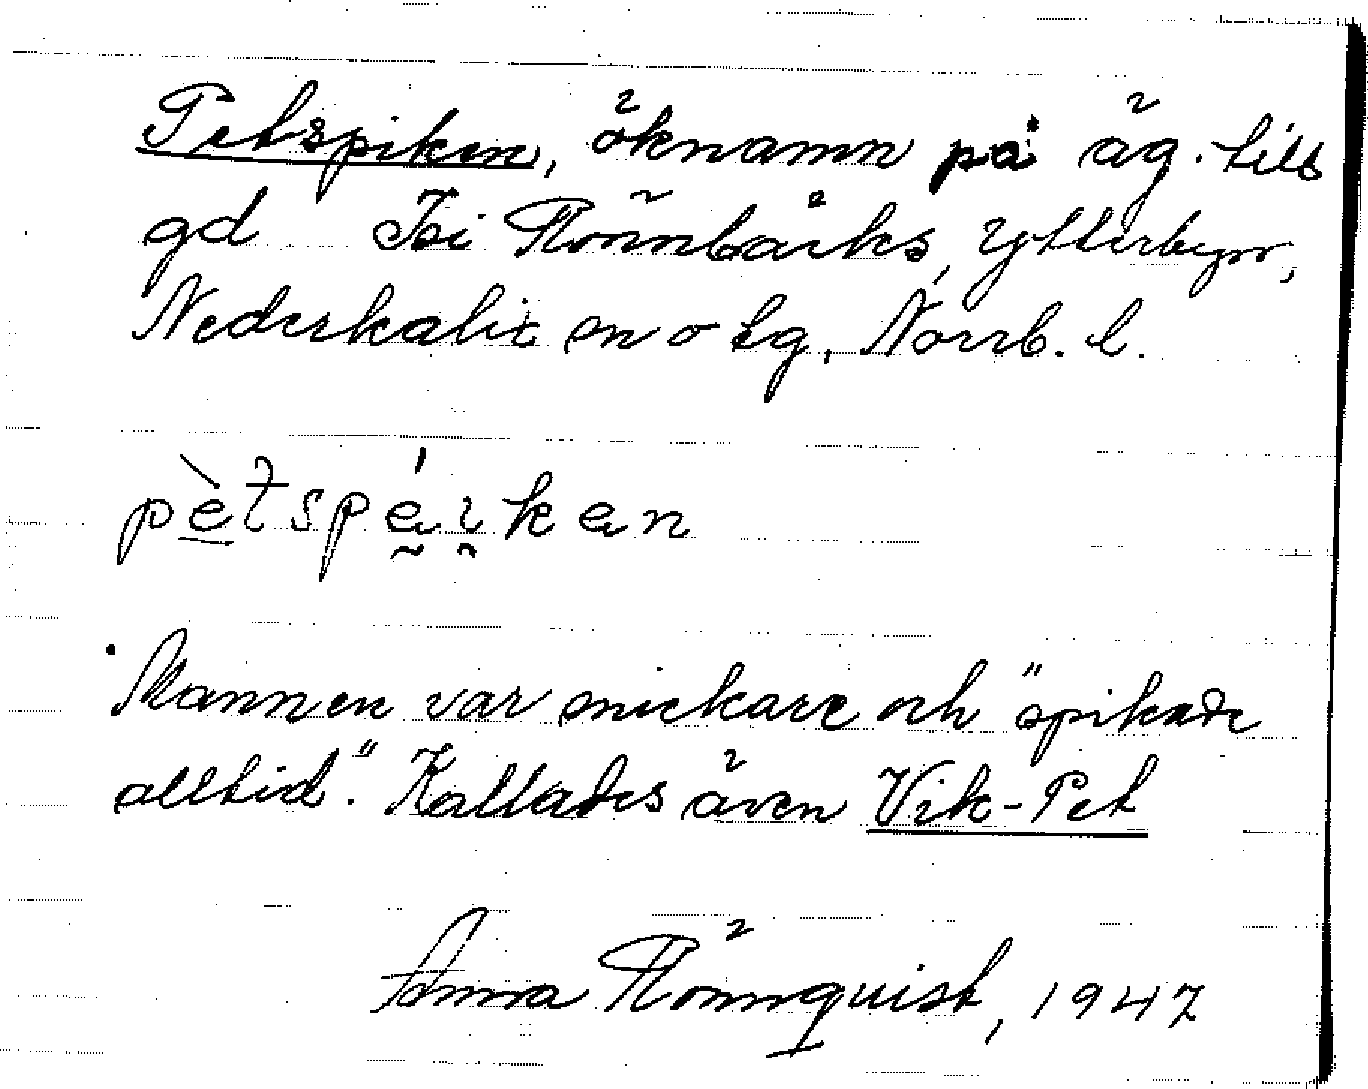 Petspiken, öknamn på äg. till
gd Isi Rönnbäcks, Ytterbyn,
Nederkalix sn o tg, Norrb. l.
pètspe̖íken
Mannen var snickare och "spikade
alltid." Kallades även Vik-Pet
Anna Rönnquist, 1947